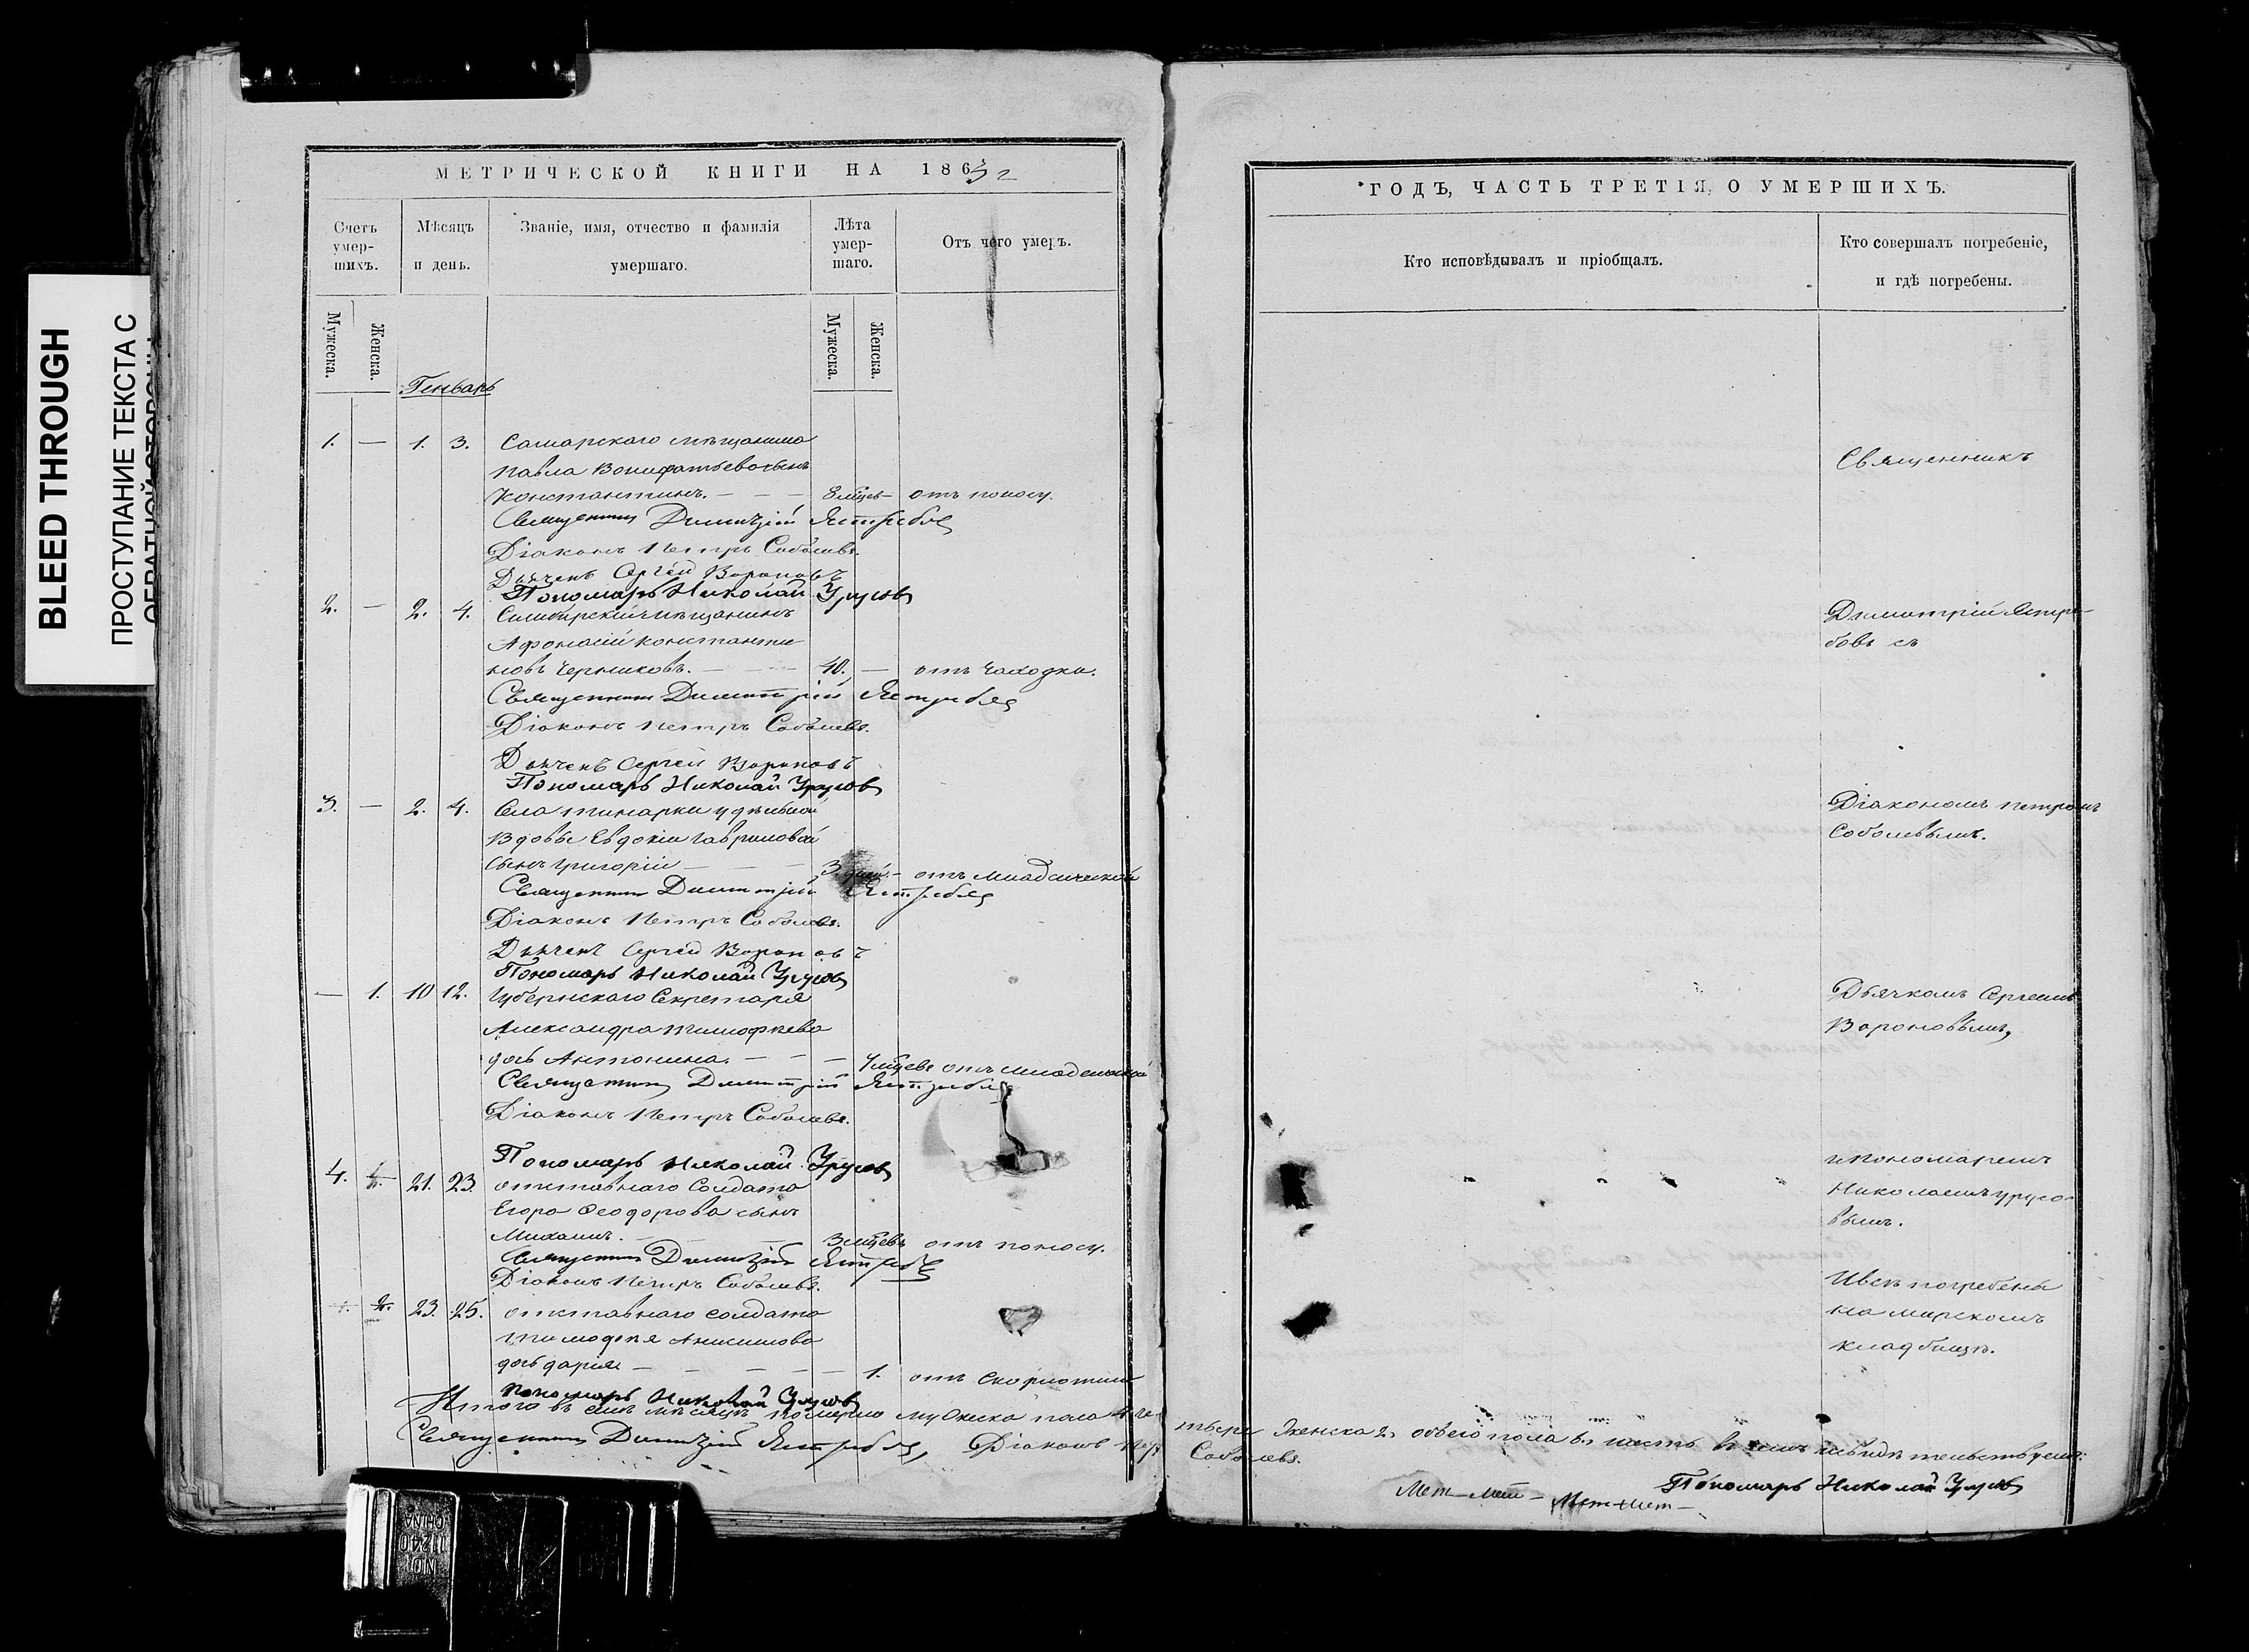 BLEED THROUGH
ПРОСТУПАНИЕ ТЕКСТА С
ОБРАТНОЙ СТОРОНЫ
МЕТРИЧЕСКОЙ КНИГИ НА 1863
Счетъ умер-шихъ.
Мѣсяцъ и день.
Званіе, имя, отчество и фамилія умершаго.
Лѣта умер-шаго.
Отъ чего умеръ.
Мужеска.
Женска.
Мужеска.
Женска.
Генварь
1. — 1. 3. Самарскаго мѣщанина
Павла Вонифатьева сынъ
Константинъ. — — — 8 мѣцев — отъ поносу.
Священникъ Димитрій Ястребовъ
Діаконъ Петръ Соболевъ.
Дьячекъ Сергей Вороновъ
Пономарь Николай Урусовъ
2. — 2. 4. Симбирскій мѣщанинъ
Афонасій Константи
новъ Черниковъ. — — — 40. — отъ чахотки.
Священникъ Димитрій Ястребовъ
Діаконъ Петръ Соболевъ.
Дьячекъ Сергей Вороновъ
Пономарь Николай Урусовъ
3. — 2. 4. Села Тинарки удѣльной
вдовы Евдокіи Гавриловой
сынъ Григорій — — — 3 — отъ младенческой
Священникъ Димитрій Ястребовъ
Діаконъ Петръ Соболевъ.
Дьячекъ Сергей Вороновъ
Пономарь Николай Урусовъ
— 1. 10 12. Губернскаго Секретаря
Александра Тимофеева
дочь Антонина. — — — мѣцевъ отъ младенческой
Священникъ Димитрій Ястребовъ
Діаконъ Петръ Соболевъ.
Пономарь Николай Урусовъ
4. — 21. 23. отставнаго Солдата
Егора Феодорова сынъ
Михаилъ. — — — 3 мѣцевъ отъ поносу.
Священникъ Димитрій Ястребовъ
Діаконъ Петръ Соболевъ.
2. 23. 25. отставнаго солдата
Тимофея Анисимова
дочь Дарія — — — — 1. отъ Скорлотини
Пономарь Николай Урусовъ
Итого въ семъ мѣсяцѣ померло мужеска пола 4 че-
Священникъ Димитрій Ястребовъ, Діаконъ Петръ
ГОДЪ, ЧАСТЬ ТРЕТІЯ, О УМЕРШИХЪ.
Кто исповѣдывалъ и пріобщалъ.
Кто совершалъ погребеніе,
и гдѣ погребены.
Священникъ
Димитрій Ястре-
бовъ съ
Діакономъ Петромъ
Соболевымъ.
Дьячкомъ Сергеемъ
Вороновымъ,
и пономаремъ
Николаемъ Урусо-
вымъ.
И всѣ погребены
на мирскомъ
кладбищѣ.
тыре женска 2. обѣего пола 6. шесть въ чемъ свидѣтельствуемъ:
Соболевъ.
Пономарь Николай Урусовъ